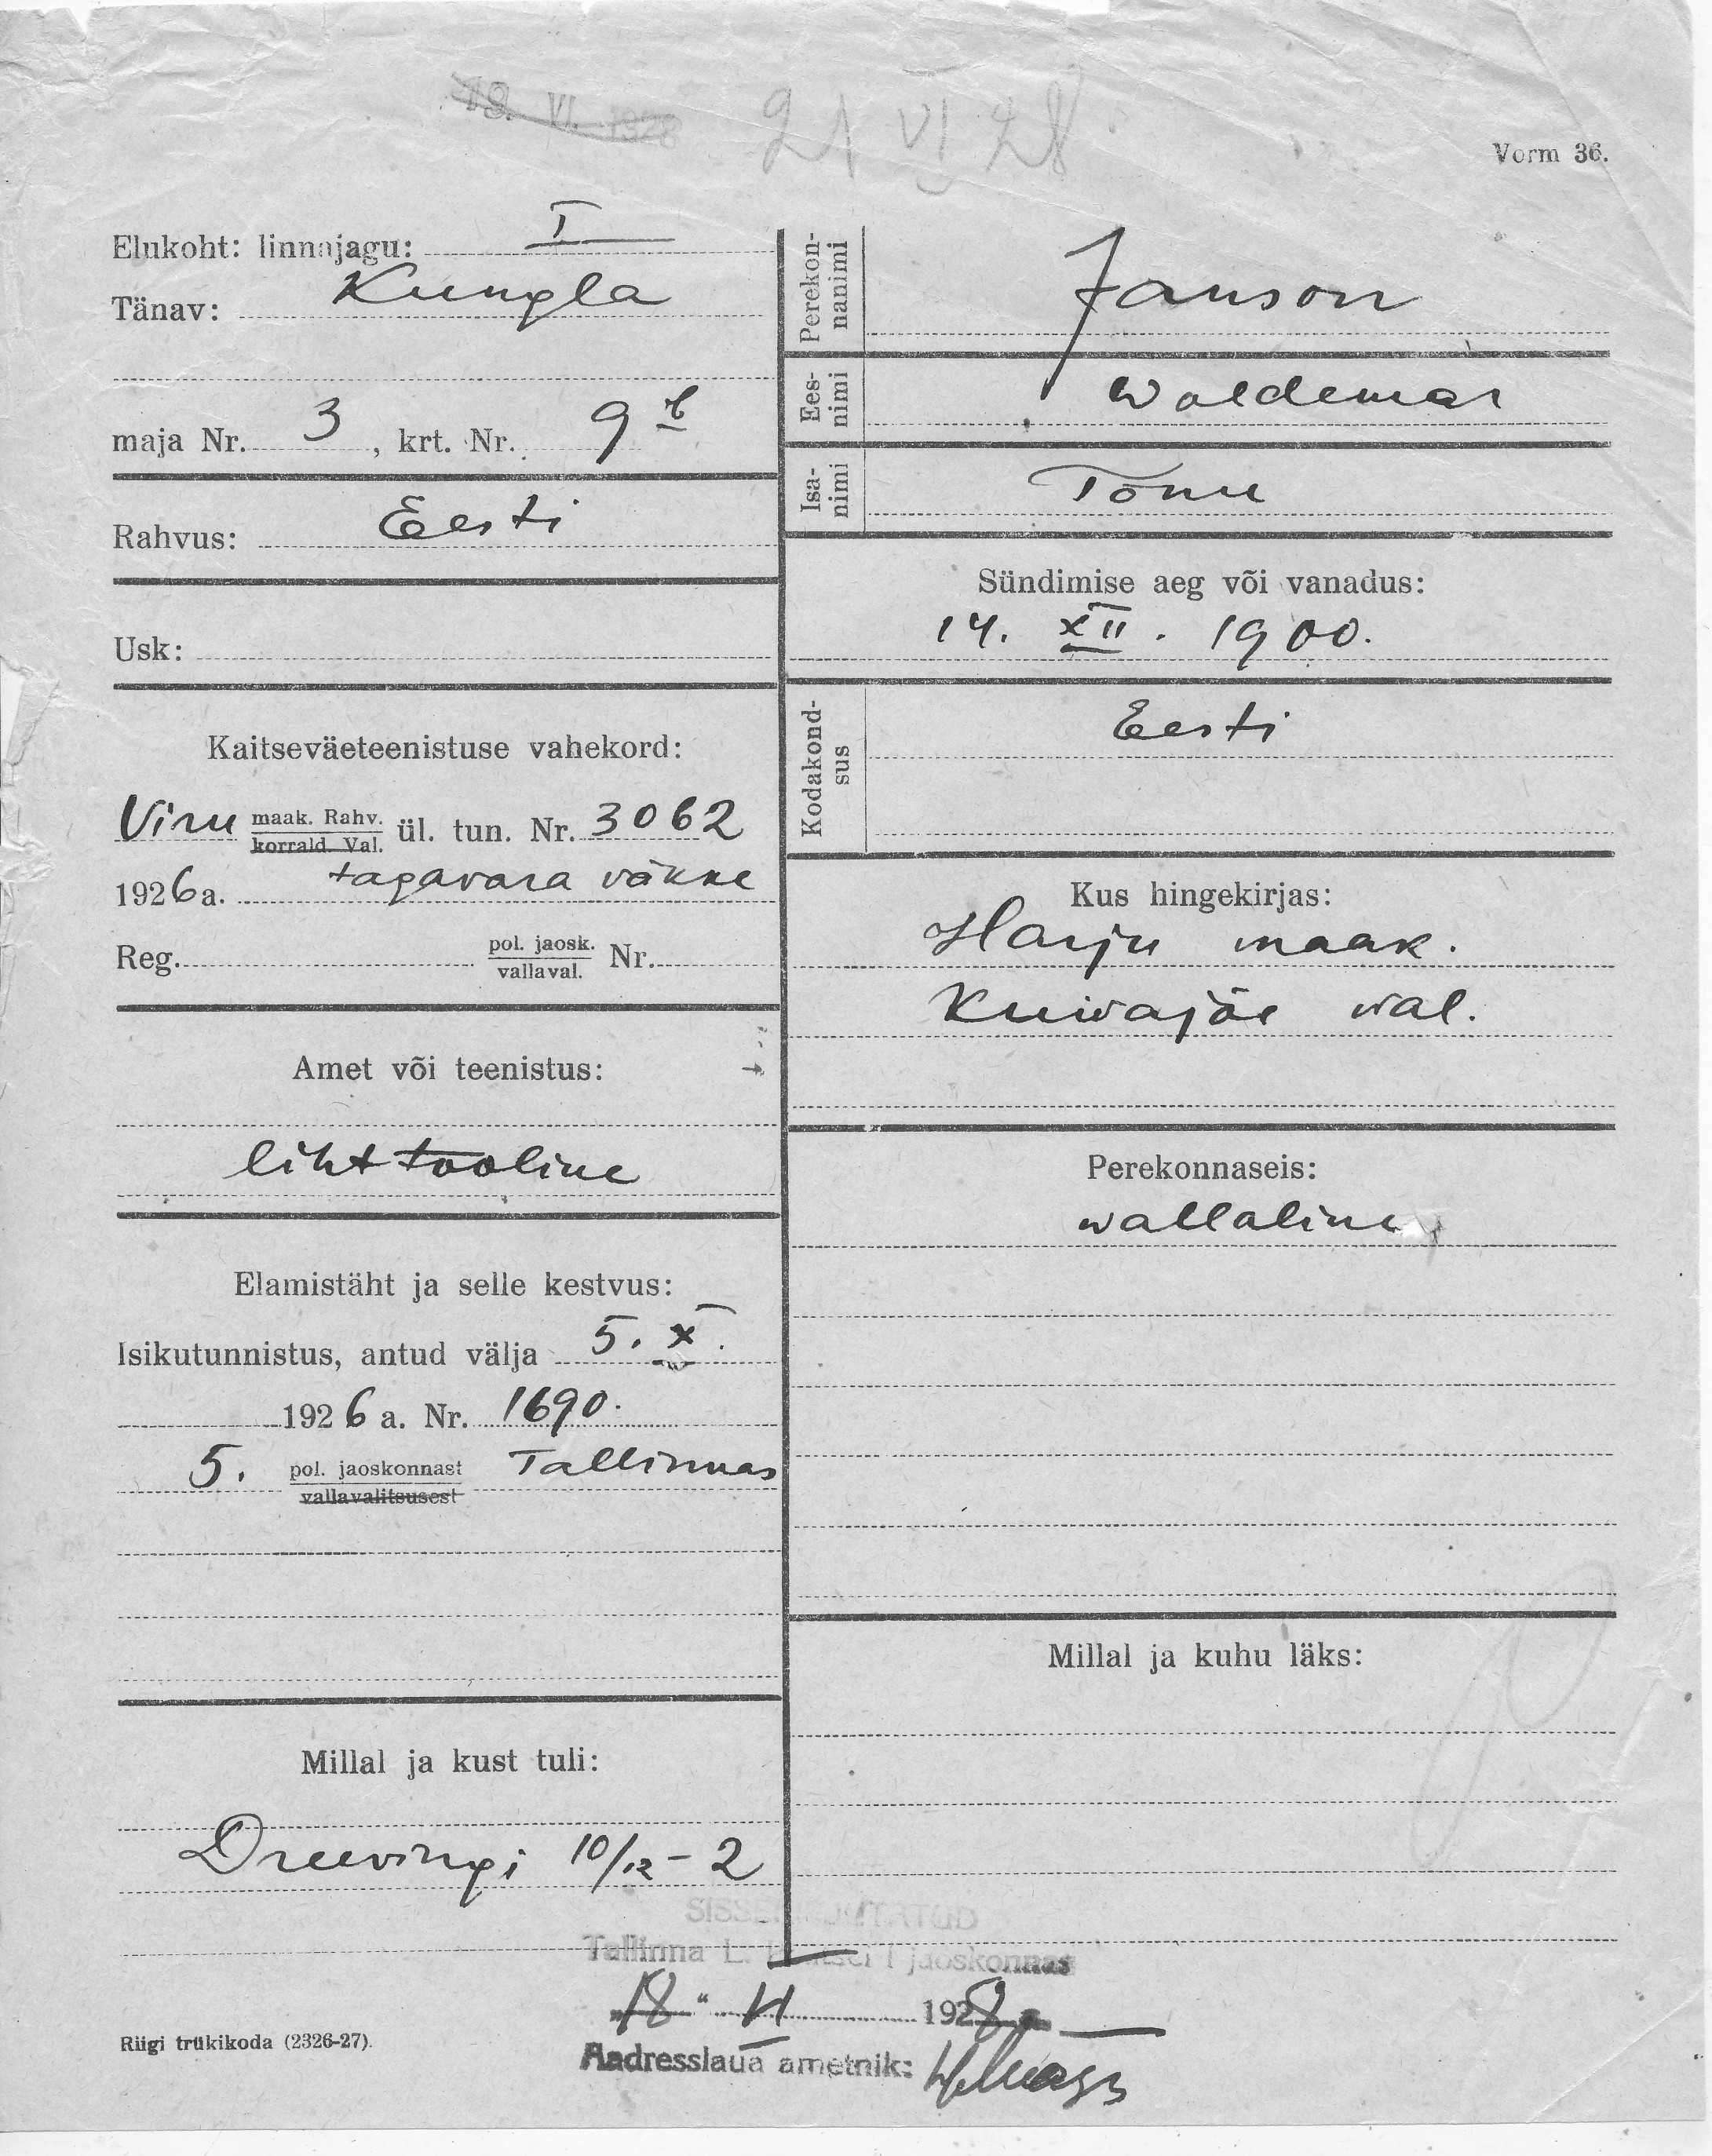 19. VI. 1928 21 VI 28
Vorm 36.
Elukoht: linnajagu: I
Tänav: Kungla
maja Nr. 3, krt. Nr. 9 b
Rahvus: Eesti
Usk:
Kaitseväeteenistuse vahekord:
Viru maak. Rahv. ül. tun. Nr. 3062
korrald. Val.
1926 a. tagavara väkke
Reg. pol. jaosk. Nr.
vallaval.
Amet või teenistus:
lihttööline
Elamistäht ja selle kestvus:
Isikutunnistus, antud välja 5. X.
1926 a. Nr. 1690.
5. pol. jaoskonnast Tallinnas
vallavalitsusest
Millal ja kust tuli:
Dreevingi 10/12 - 2
Perekon-
nanimi
Janson
Ees-
nimi
Woldemar
Isa-
nimi
Tõnu
Sündimise aeg või vanadus:
14. XII. 1900.
Kodakond-
sus
Eesti
Kus hingekirjas:
Harju maak.
Kuiwajõe wal.
Perekonnaseis:
wallaline
Millal ja kuhu läks:
Tallinna L. I jaoskonnas
"18" VI 1928
Aadresslaua ametnik:
Riigi trükikoda (2326-27).